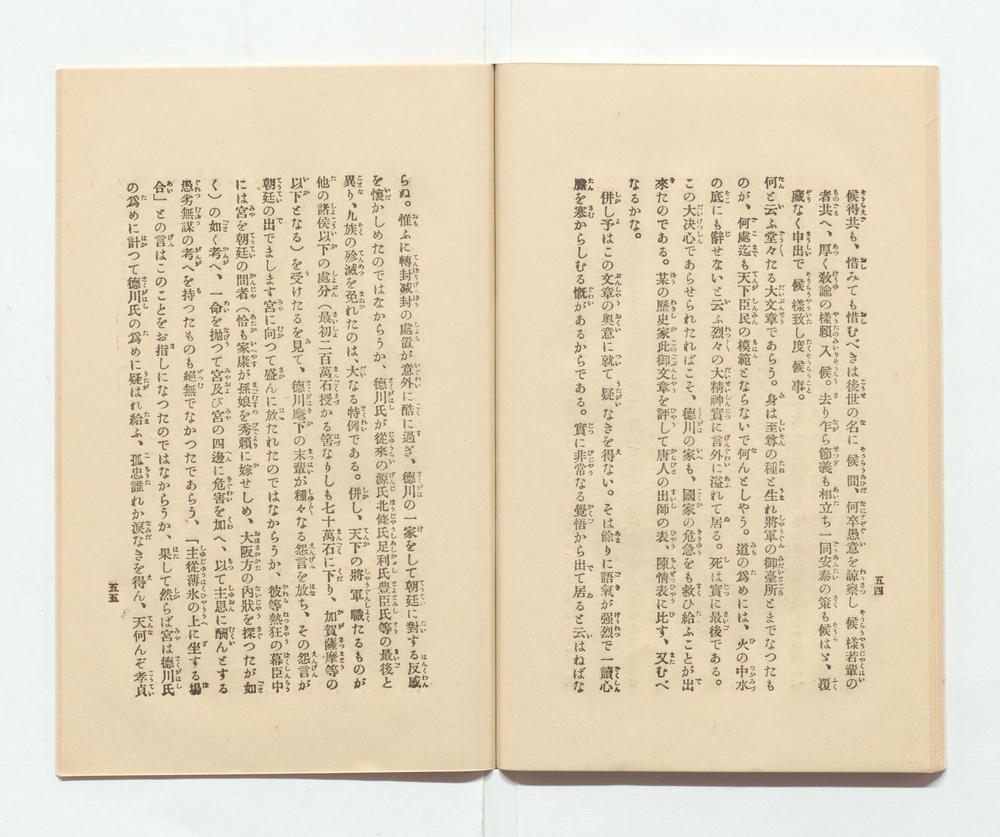 候得共も、惜みても惜むべきは後世の名に候間何卒愚意を諒察し候樣若輩の
者共へ、厚く敎諭の樣賴入候。去り乍ら節義も相立ち一同安泰の策も候はゞ、覆
藏なく申出で候樣致し度候事。
何と云ふ堂々たる大文章であらう。身は至尊の種と生れ將軍の御臺所とまでなつたも
のが、何處迄も天下臣民の模範とならないで何んとしやう。道の爲めには、火の中水
の底にも辭せないと云ふ烈々の大精神實に言外に溢れて居る。死は實に最後である。
この大決心であらせられたればこそ、德川の家も、國家の危急をも救ひ給ふことが出
來たのである。某の歷史家此御文章を評して唐人の出師の表、陳情表に比す、又むべ
なるかな。
併し予はこの文章の奧意に就て疑なきを得ない。そは餘りに語氣が强烈で一讀心
膽を寒からしむる慨があるからである。實に非常なる覺悟から出て居ると云はねばな
五四
らぬ。惟ふに轉封減封の處置が意外に酷に過ぎ、德川の一家をして朝廷に對する反感
を懷かしめたのではなからうか、德川氏が從來の源氏北條氏足利氏豐臣氏等の最後と
異り、九族の殄滅を免れたのは、大なる特例である。併し、天下の將軍職たるものが
他の諸侯以下の處分（最初二百萬石授かる筈なりしも七十萬石に下り、加賀薩摩等の
以下となる）を受けたるを見て、德川麾下の末輩が種々なる怨言を放ち、その怨言が
朝廷の出でまします宮に向つて盛んに放たれたのではなからうか、彼等熱狂の幕臣中
には宮を朝廷の間者（恰も家康が孫娘を秀賴に嫁せしめ、大阪方の內狀を探つたが如
く）の如く考へ、一命を抛つて宮及び宮の四邊に危害を加へ、以て主恩に酬んとする
愚劣無謀の考へを持つたものも絕無でなかつたであらう、「主從薄氷の上に坐する場
合」との言はこのことをお指しになつたのではなからうか、果して然らば宮は德川氏
の爲めに計つて德川氏の爲めに疑はれ給ふ、孤忠誰れか淚なきを得ん、天何んぞ孝貞
五五